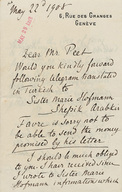 May 22d 1908
6, RUE DES GRANGES
GENÈVE
Dear Mr Peet
Would you kindly forward
following telegram translated
in turkish to
Sister Marie Hofmann
Shefik Arabker
Favre is sorry not to
be able to send the money
promised by her letter.
I should be much obliged
to you. I have
wrote to Sister Marie
Hofmann information which